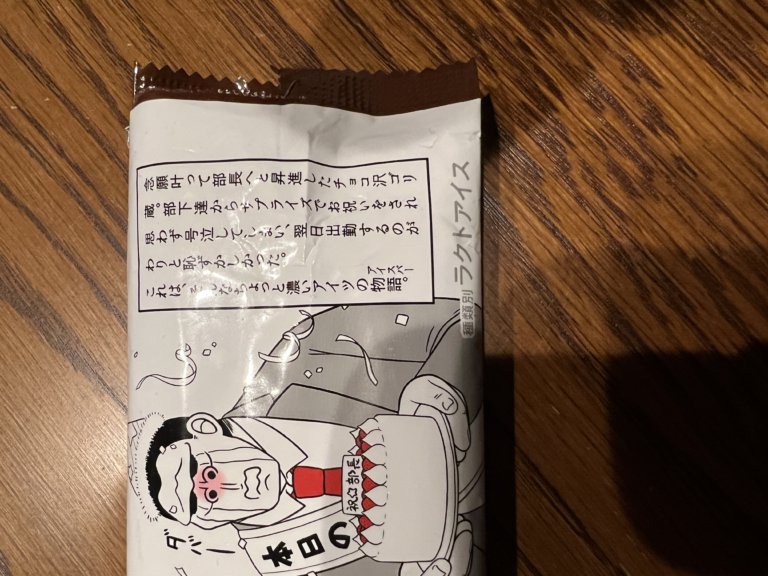 念願叶って部長へと昇進したチョコ沢ゴリ
蔵。部下達からサプライズでお祝いをされ
思わず号泣してしまい、翌日出勤するのが
わりと恥ずかしかった。
これは、そんなちょっと濃いアイツの物語。
アイスバー
種類別 ラクトアイス
祝♡部長
ダバー
本日の